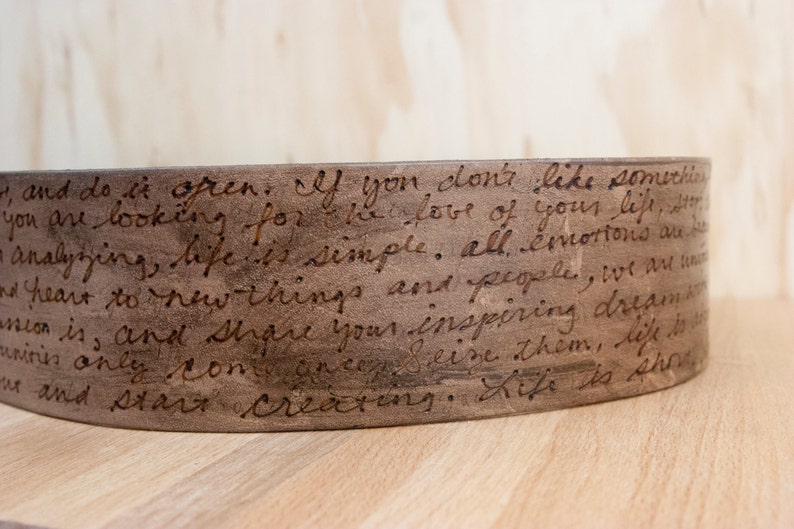 and do it often. If you don't like something
you are looking for the love of your life, stop
analyzing, life is simple. all emotions are
heart to new things and people, we are
is, and share your inspiring dream
only come once, seize them. life is
and start creating. Life is short